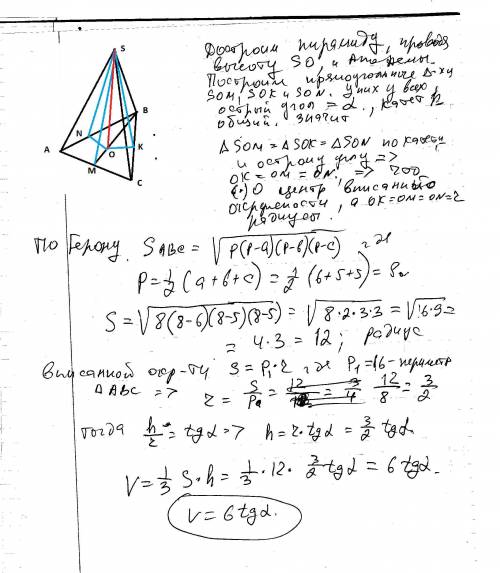 S
B
N
A
O
K
M
C
Достроим пирамиду, проведя
высоту SO, и апофемы.
Построим прямоугольные Δ-ки
SOM, SOK и SON. У них у всех
острый угол = α, катет h
общий. Значит
ΔSOM = ΔSOK = ΔSON по катету
и острому углу =>
OK = OM = ON, =>
(·) O центр вписанной
окружности, а OK=OM=ON=r
радиусы.
По Герону. S ABC = √P(P-a)(P-b)(P-c), где
P = 1/2 (a+b+c) = 1/2 (6+5+5) = 8.
S = √8(8-6)(8-5)(8-5) = √8·2·3·3 = √16·9 =
= 4·3 = 12; радиус
вписанной окр-ти S = P₁·r где P₁=16 - периметр
ΔABC => r = S/P = 12/8 = 3/2
тогда h/r = tgα => h = r·tgα = 3/2 tgα
V = 1/3 S·h = 1/3 · 12 · 3/2 tgα = 6tgα.
V = 6tgα.